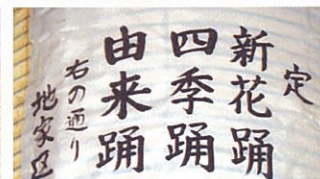 定
新花踊
四季踊
由来踊
右の通り
地家区